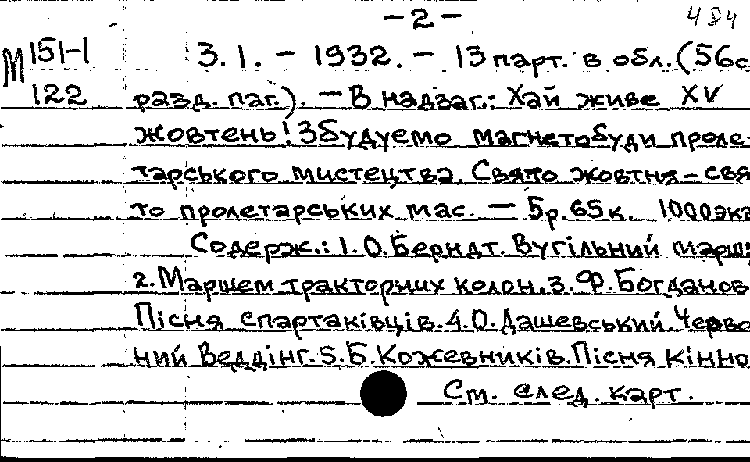 -2- 484
М 151-1 3.1. - 1932. - 13 парт. в обл. (56с
122 разд. паг.). - В надзаг.: Хай живе XV
жовтень! Збудуемо магнетобуди проле-
тарського мистецтва. Свято жовтня - свя
то пролетарських мас. - Бр. 65 к. 1000 экз
Содерж.: 1. О. Берндт. Вугільний марш
2. Маршем тракторних колон. 3. Ф. Богданов
Пісня спартаківців. 4. О. Дашевський. Черво
ний Веддінг. 5. Б. Кожевников. Пісня кінно
См. след. карт.